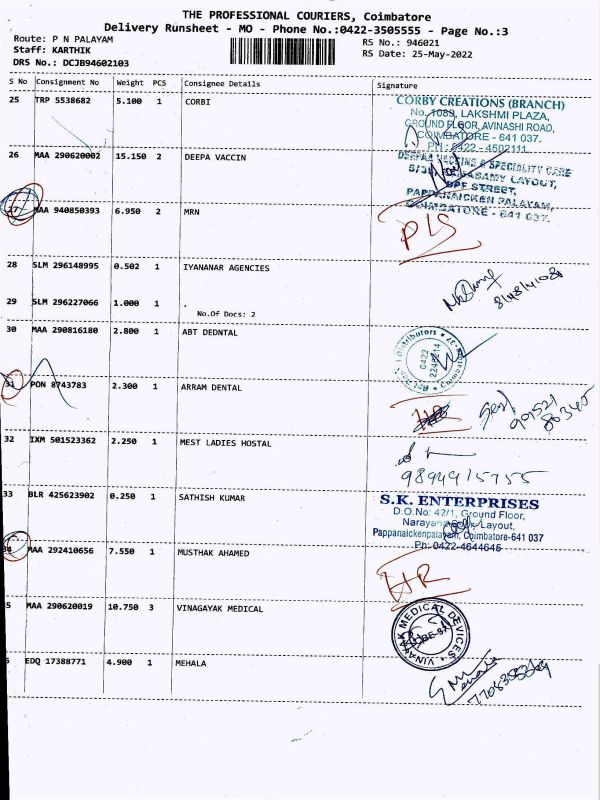 THE PROFESSIONAL COURIERS, Coimbatore
Delivery Runsheet - MO - Phone No.:0422-3505555 - Page No.:3
Route: P N PALAYAM
Staff: KARTHIK
DRS No.: DCJB94602103
RS No.: 946021
RS Date: 25-May-2022
S No Consignment No Weight PCS Consignee Details Signature
25 TRP 5538682 5.100 1 CORBI
CORBY CREATIONS (BRANCH)
No. 1089, LAKSHMI PLAZA,
GROUND FLOOR, AVINASHI ROAD,
COIMBATORE - 641 037.
PH : 0422 - 4502111
26 MAA 290620002 15.150 2 DEEPA VACCIN
DEEPAA VACCINE & SPECIALITY CARE
LAYOUT,
STREET,
PAPPANAICKEN PALAYAM,
COIMBATORE - 641 037.
27 MAA 940850393 6.950 2 MRN
PLS
28 SLM 296148995 0.502 1 IYANANAR AGENCIES
29 SLM 296227066 1.000 1 .
No.Of Docs: 2
30 MAA 290816180 2.800 1 ABT DEDNTAL
0422
31 PON 8743783 2.300 1 ARRAM DENTAL
32 IXM 501523362 2.250 1 MEST LADIES HOSTAL
9894915755
33 BLR 425623902 0.250 1 SATHISH KUMAR
S.K. ENTERPRISES
D.O.No: 42/1, Ground Floor,
Layout,
Pappanaickenpalayam, Coimbatore-641 037
Ph: 0422-4644645
34 MAA 292410656 7.550 1 MUSTHAK AHAMED
HR
5 MAA 290620019 10.750 3 VINAGAYAK MEDICAL
VINAYAK MEDICAL DEVICES
EDQ 17388771 4.900 1 MEHALA